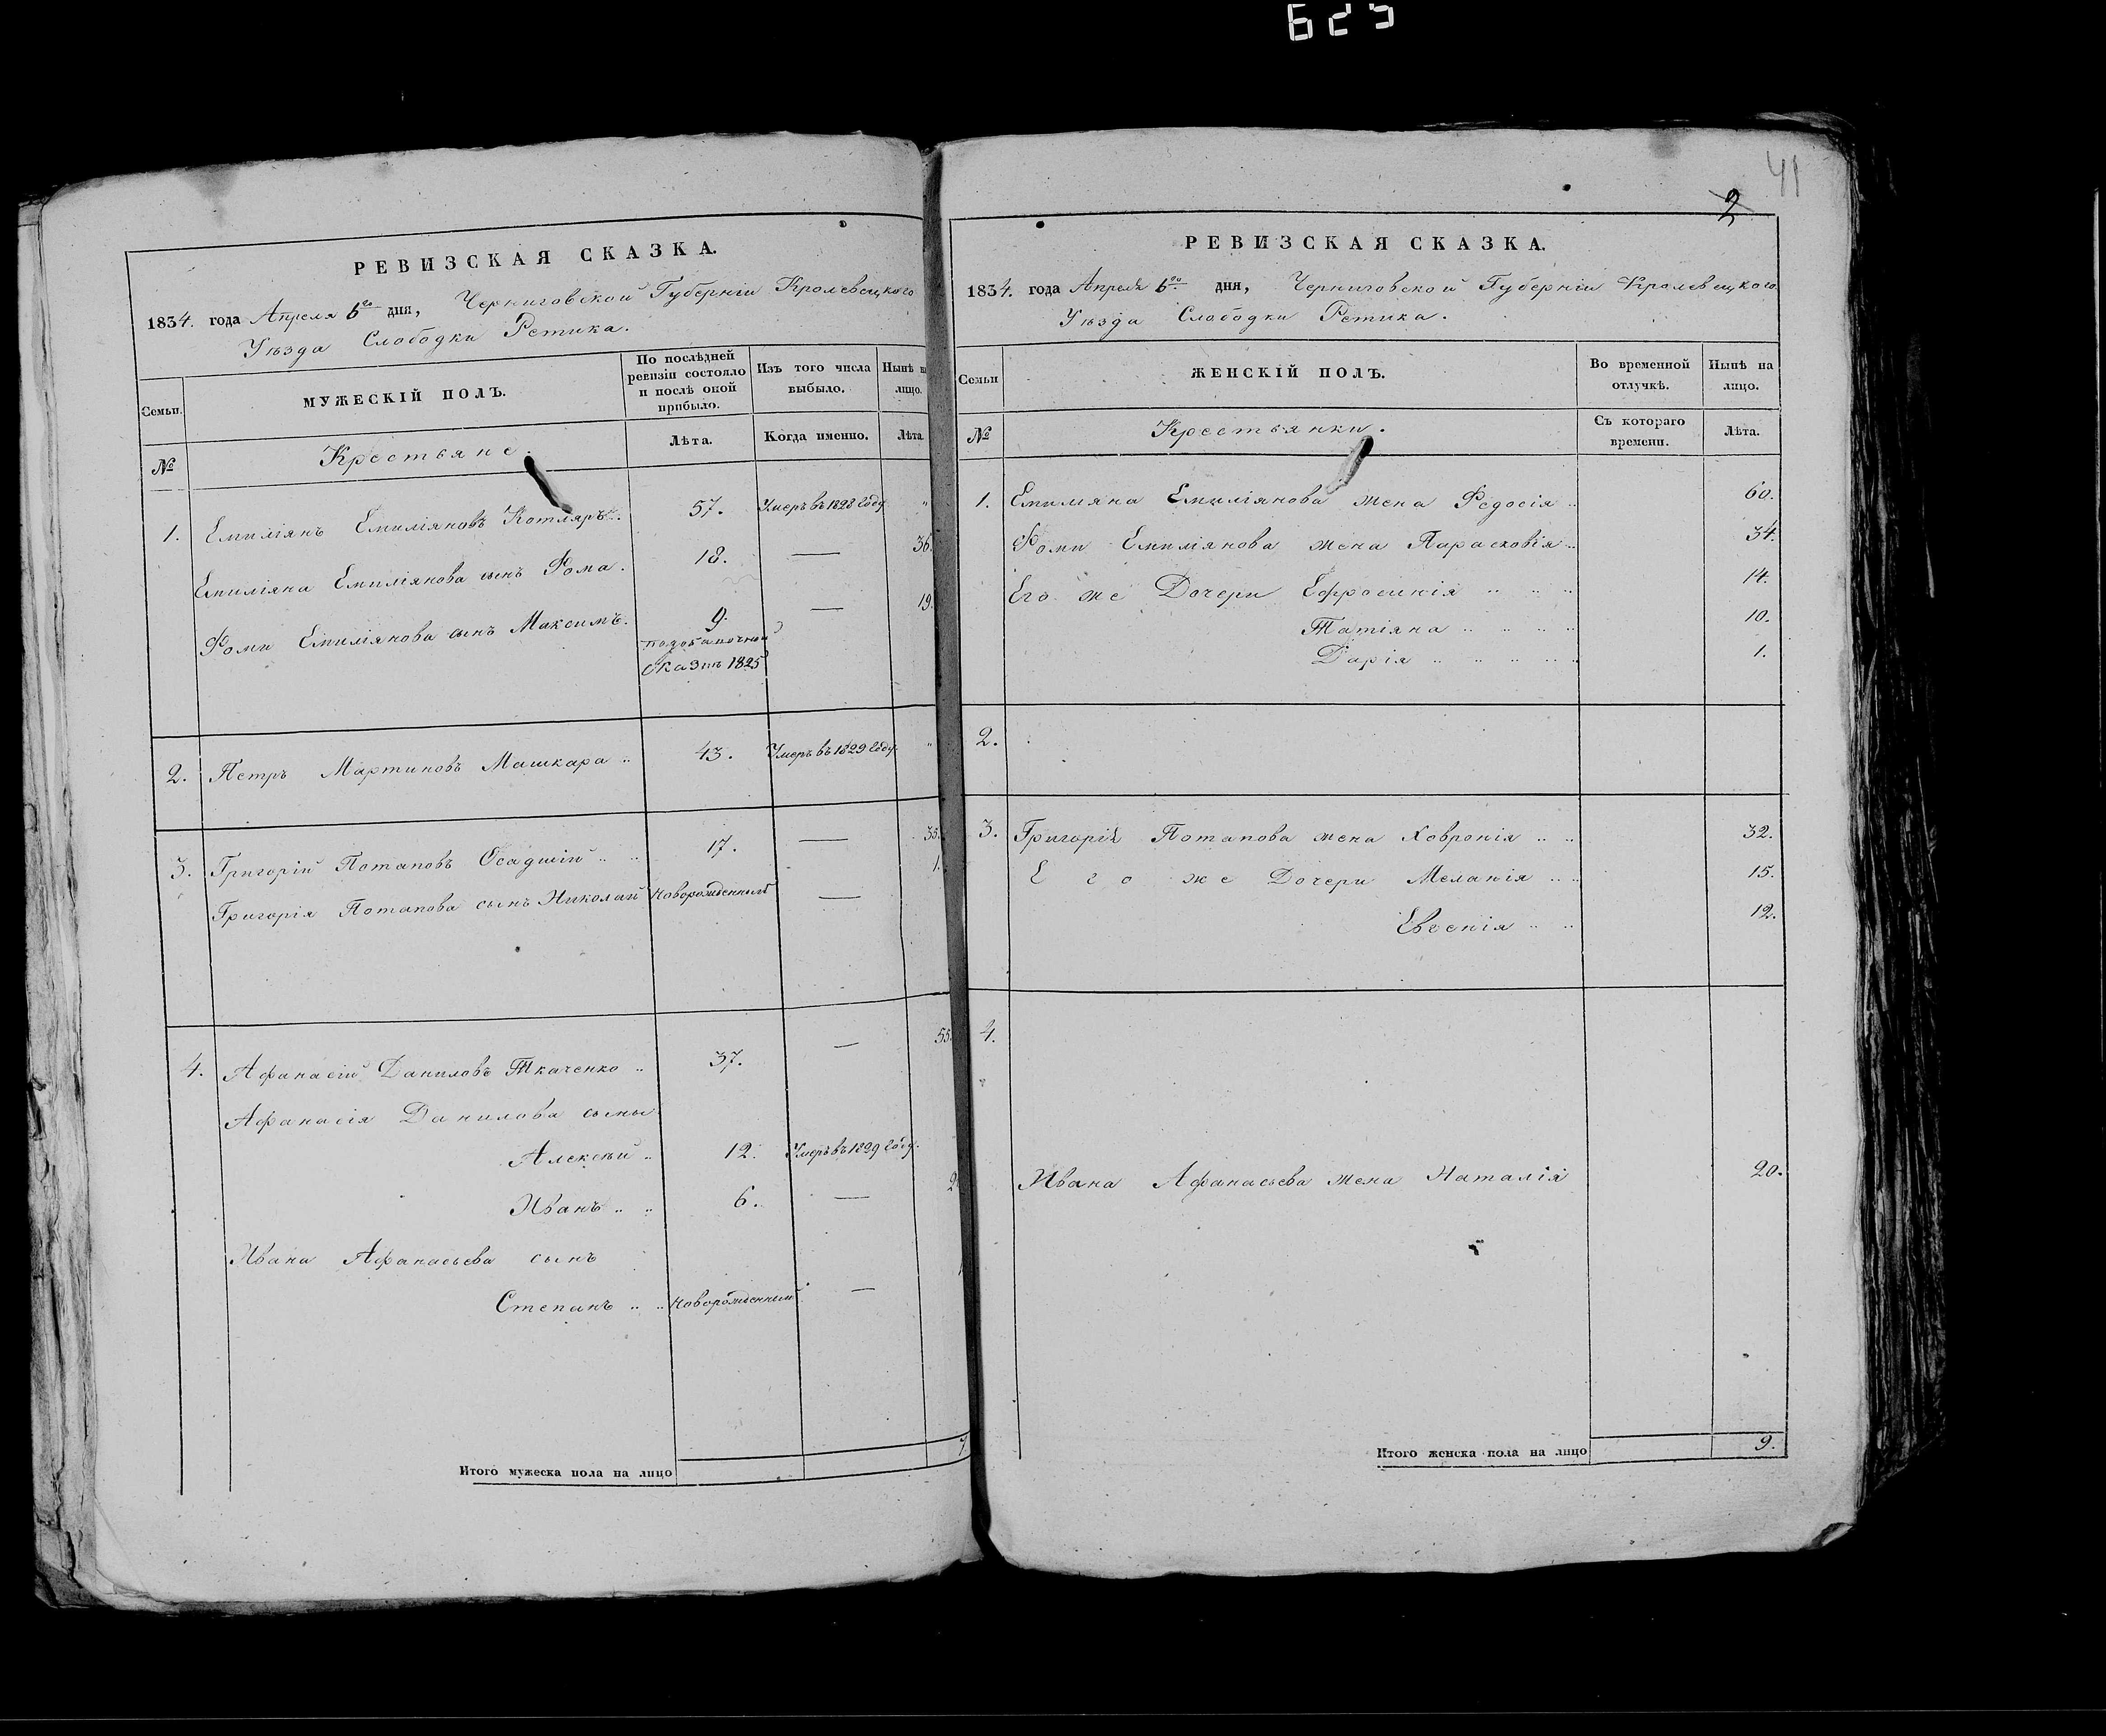 625
РЕВИЗСКАЯ СКАЗКА.
1834. года Апреля 6го дня, Черниговской Губерніи Кролевецкого
Уѣзда Слободки Ретика.
Семьи.
МУЖЕСКІЙ ПОЛЪ.
По послѣдней ревизіи состояло и послѣ оной прибыло.
Изъ того числа выбыло.
Нынѣ на лицо.
№
Крестьяне.
Лѣта.
Когда именно.
Лѣта.
1. Емиліянъ Емиліяновъ Котляръ 57. Умеръ въ 1828 году "
Емиліяна Емиліянова сынъ Фома. 18. — 36.
Фоми Емиліянова сынъ Максимъ. 9. — 19.
сказкѣ 1825
2. Петръ Мартиновъ Машкара 43. Умеръ въ 1829 году. "
3. Григорій Потаповъ Осадшій 17. — 35.
Григорія Потапова сынъ Николай Новорожденный — 1.
4. Афанасій Даниловъ Ткаченко 37. — 55.
Афанасія Данилова сыны
Алексѣй 12. Умеръ въ 1829 году.
Иванъ 6. —
Ивана Афанасьева сынъ
Степанъ Новорожденный —
Итого мужеска пола на лицо 7
41
2
РЕВИЗСКАЯ СКАЗКА.
1834. года Апреля 6го дня, Черниговской Губерніи Кролевецкого
Уѣзда Слободки Ретика.
Семьи
ЖЕНСКІЙ ПОЛЪ.
Во временной отлучкѣ.
Нынѣ на лицо.
№
Крестьянки.
Съ котораго времени.
Лѣта.
1. Емиліяна Емиліянова жена Федосія 60.
Фоми Емиліянова жена Парасковія 34.
Его же Дочери Ефросинія 14.
Татіяна 10.
Дарія 1.
2.
3. Григорія Потапова жена Ховронія 32.
Его же Дочери Меланія 15.
Евгенія 12.
4.
Ивана Афанасьева жена Наталія 20.
Итого женска пола на лицо 9.